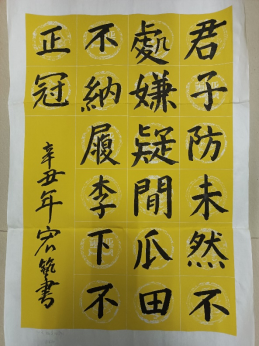 君子防未然不
處嫌疑間瓜田
不納履李下不
正冠
辛丑年宏銘書